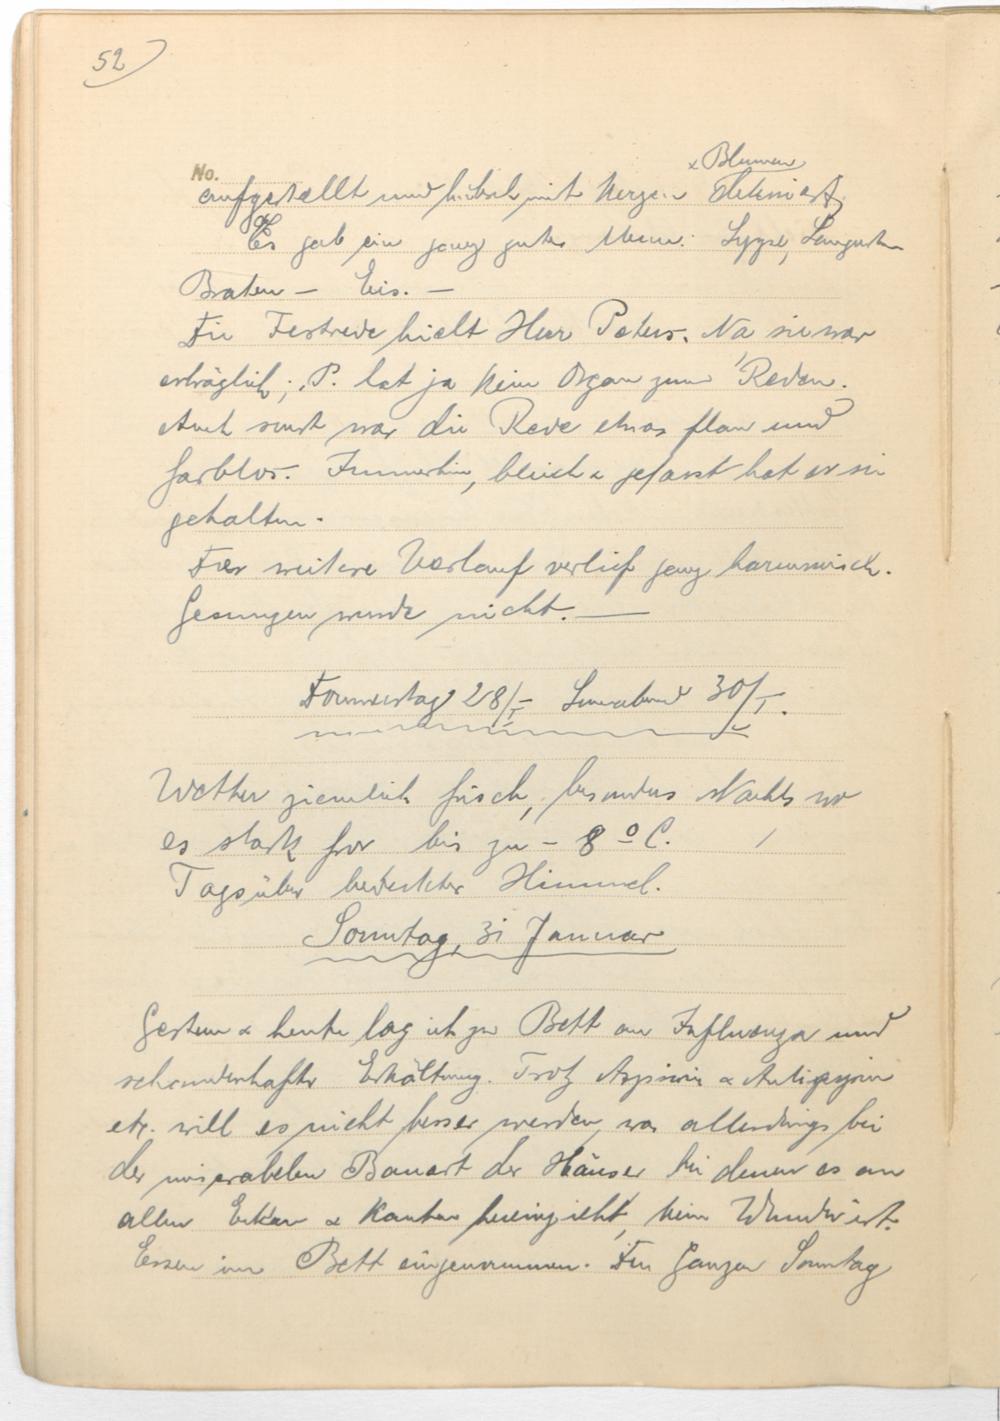 52
No.
& Blumen
aufgestellt und hübsch mit Kerzen dekoriert.
Es gab ein ganz gutes Menu: Suppe, Langusten
Braten – Eis. –
Die Festrede hielt Herr Peters. Na sie war
erträglich; P. hat ja kein Organ zum Reden.
Auch sonst war die Rede etwas flau und
farblos. Immerhin, bleich & gefasst hat er sie
gehalten.
Der weitere Verlauf verlief ganz harmonisch.
Gesungen wurde nicht. —
Donnerstag 28/I – Sonnabend 30/I.
Wetter ziemlich frisch, besonders Nachts wo
es stark fror bis zu – 8° C.
Tagsüber bedeckter Himmel.
Sonntag, 31 Januar
Gestern & heute lag ich zu Bett an Influenza und
schauderhafter Erkältung. Trotz Aspirin & Antipyrin
etc. will es nicht besser werden, was allerdings bei
der miserabelen Bauart der Häuser bei denen es an
allen Ecken & Kanten hereinzieht, kein Wunder ist.
Essen im Bett eingenommen. Den Ganzen Sonntag